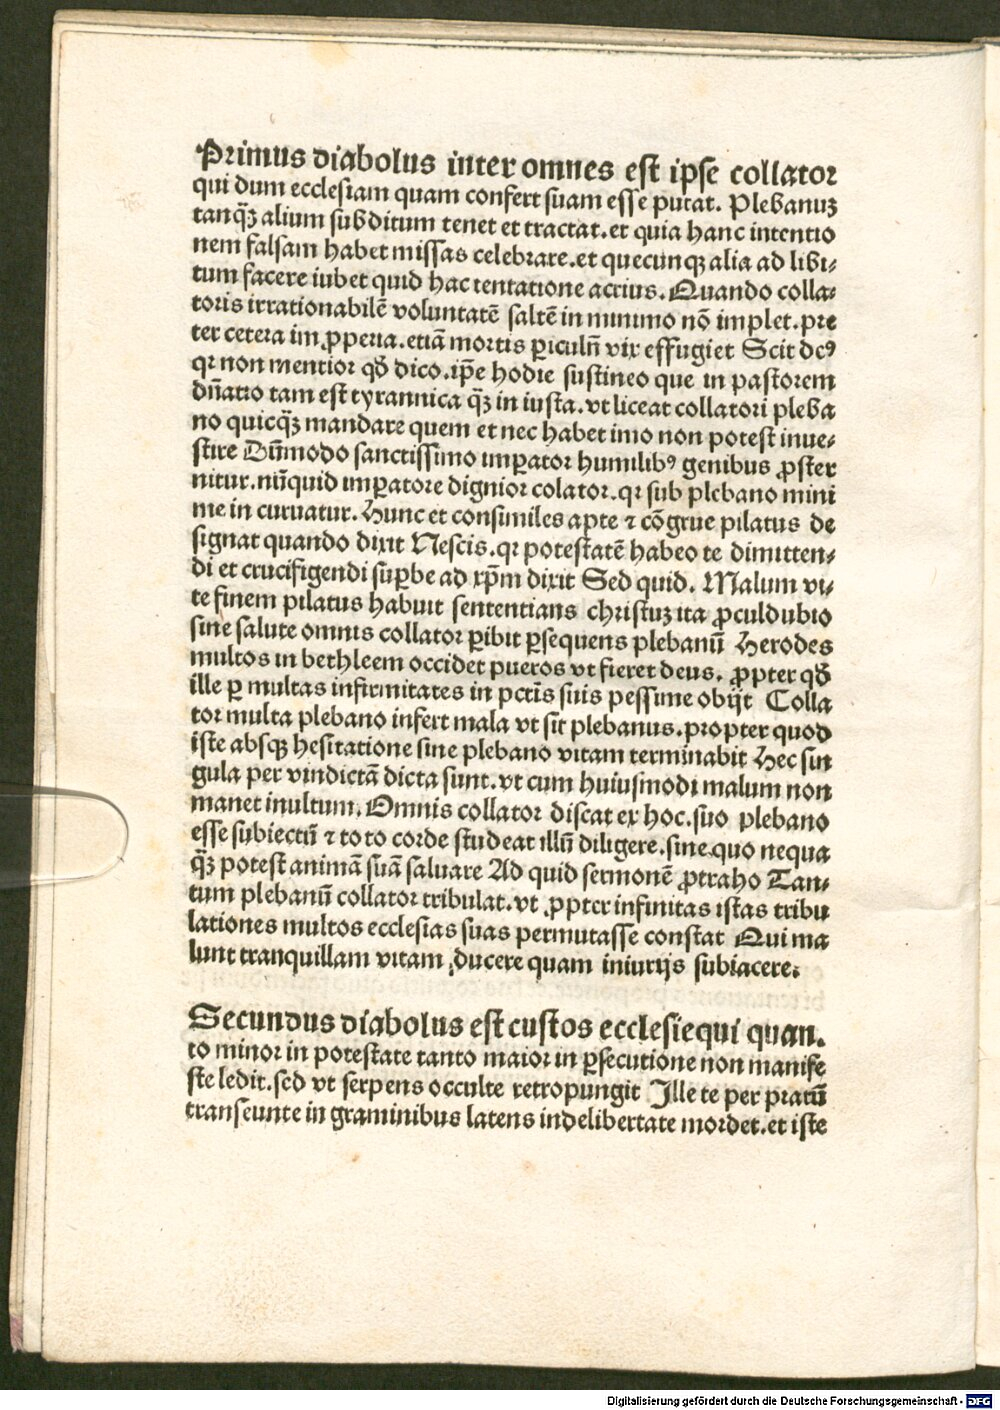 Primus diabolus inter omnes est ipse collator
qui dum ecclesiam quam confert suam esse putat. Plebanuz
tanq̃ȝ alium subditum tenet et tractat. et quia hanc intentio
nem falsam habet missas celebrare. et quecunqȝ alia ad libi⸗
tum facere iubet quid hac tentatione acrius. Quando colla⸗
toris irrationabilē voluntatē saltē in minimo nō implet. pre
ter cetera im ꝓperia. etiā mortis ꝑiculū vix effugiet Scit dcꝰ
qꝛ non mentior qď dico. ip̄e hodie sustineo que in pastorem
dn̄atio tam est tyrannica q̃ȝ in iusta. vt liceat collatori pleba
no quicq̃ȝ mandare quem et nec habet imo non potest inue⸗
stire Dūmodo sanctissimo imꝑator humilibꝰ genibus ꝓster
nitur. nūquid imꝑatore dignior colator. qꝛ sub plebano mini
me in curuatur. Hunc et consimiles apte ⁊ cōgrue pilatus de
signat quando dixit Nescis. qꝛ potestatē habeo te dimitten⸗
di et crucifigendi suꝑbe ad xp̄m dixit Sed quid. Malum vi⸗
te finem pilatus habuit sententians christuz ita ꝓculdubio
sine salute omnis collator ꝑibit ꝑsequens plebanū Herodes
multos in bethleem occidet pueros vt fieret deus. ꝓpter qď
ille ꝑ multas infirmitates in pctīs suis pessime obijt Colla
tor multa plebano infert mala vt sit plebanus. propter quod
iste absqȝ hesitatione sine plebano vitam terminabit Hec sin
gula per vindictā dicta sunt. vt cum huiusmodi malum non
manet inultum. Omnis collator discat ex hoc. suo plebano
esse subiectū ⁊ toto corde studeat illū diligere. sine quo nequa
q̃ȝ potest animā suā saluare Ad quid sermonē ꝓtraho Tan⸗
tum plebanū collator tribulat. vt ꝓpter infinitas istas tribu
lationes multos ecclesias suas permutasse constat Qui ma
lunt tranquillam vitam ducere quam iniurijs subiacere.
Secundus diabolus est custos ecclesie qui quan.
to minor in potestate tanto maior in ꝑsecutione non manife
ste ledit. sed vt serpens occulte retropungit Ille te per pratū
transeunte in graminibus latens indelibertate mordet. et iste
Digitalisierung gefördert durch die Deutsche Forschungsgemeinschaft - DFG